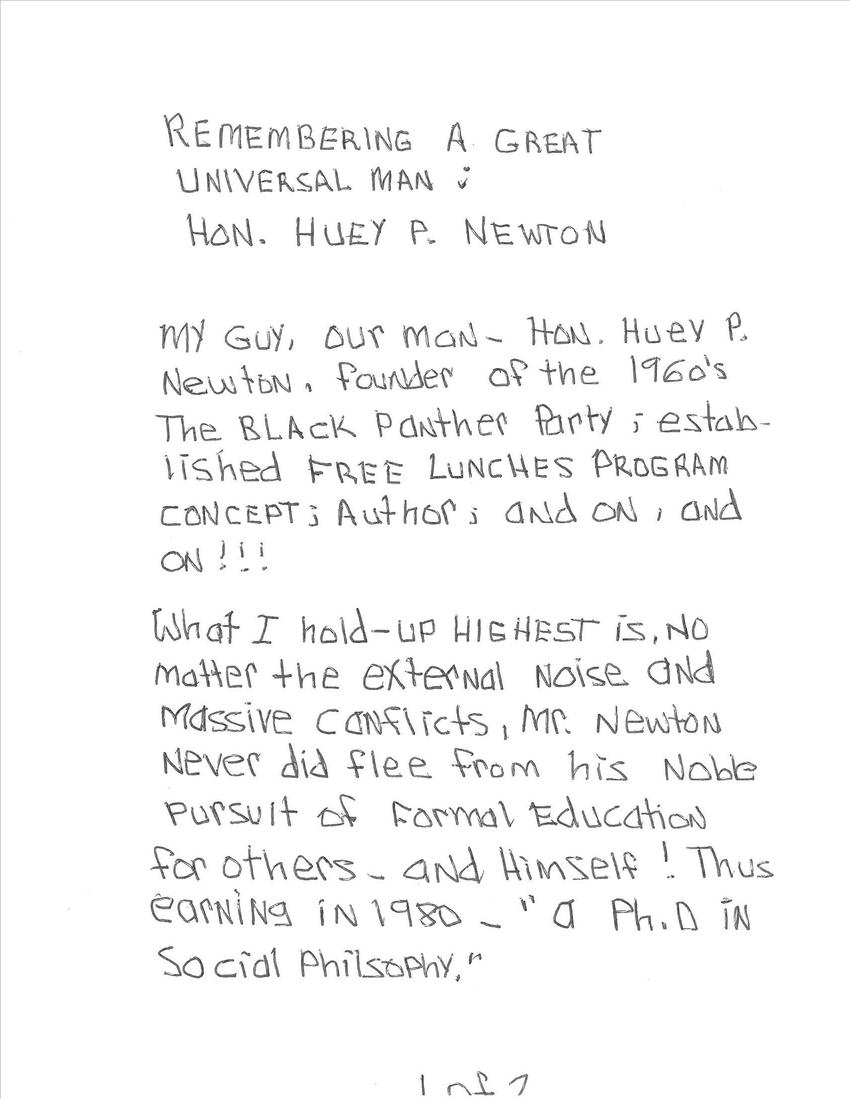 REMEMBERING A GREAT
UNIVERSAL MAN :
HON. HUEY P. NEWTON
MY GUY, our man- HON. Huey P.
Newton, founder of the 1960's
The BLACK Panther Party ; estab-
lished FREE LUNCHES PROGRAM
CONCEPT; Author; and ON, and
ON!!!
What I hold-up HIGHEST is, NO
matter the external Noise and
Massive conflicts, Mr. Newton
Never did flee from his Noble
pursuit of Formal Education
for others - and Himself! Thus
earning in 1980 - "a Ph.D in
Social Philsophy,"
1 of